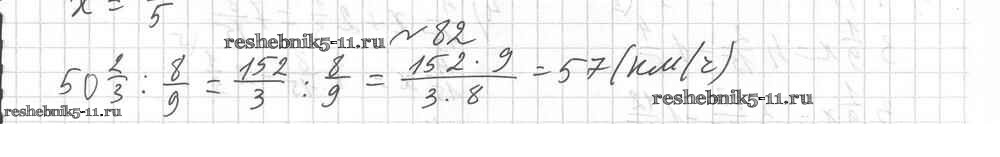 x = — 5
reshebnik5-11.ru ~ 82
50 2/3 : 8/9 = 152/3 : 8/9 = 152 · 9 / 3 · 8 = 57 (км/ч)
reshebnik5-11.ru reshebnik5-11.ru